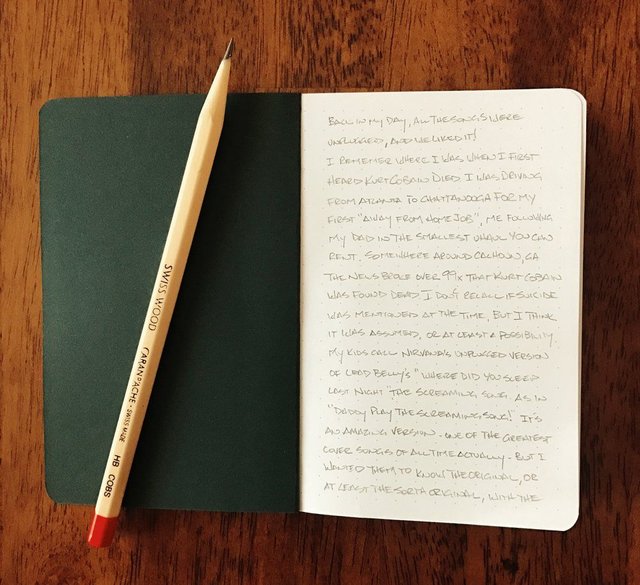 SWISS WOOD
CARAN D'ACHE · SWISS MADE
HB COBS
BACK IN MY DAY, ALL THE SONGS WERE
UNPLUGGED, AND WE LIKED IT!
I REMEMER WHERE I WAS WHEN I FIRST
HEARD KURT COBAIN DIED I WAS DRIVING
FROM ATLANTA TO CHATTANOOGA FOR MY
FIRST "AWAY FROM HOME JOB", ME FOLLOWING
MY DAD IN THE SMALLEST UHAUL YOU CAN
RENT. SOMEWHERE AROUND CALHOUN, GA
THE NEWS BROKE OVER 99X THAT KURT COBAIN
WAS FOUND DEAD I DON'T RECALL IF SUICIDE
WAS MENTIONED AT THE TIME, BUT I THINK
IT WAS ASSUMED, OR AT LEAST A POSSIBILITY.
MY KIDS CALL NIRVANA'S UNPLUGGED VERSION
OF LEAD BELLY'S "WHERE DID YOU SLEEP
LAST NIGHT" THE SCREAMING SONG. AS IN
"DADDY PLAY THE SCREAMING SONG!" IT'S
AN AMAZING VERSION - ONE OF THE GREATEST
COVER SONGS OF ALL TIME ACTUALLY - BUT I
WANTED THEM TO KNOW THE ORIGINAL, OR
AT LEAST THE SORTA ORIGINAL, WITH THE